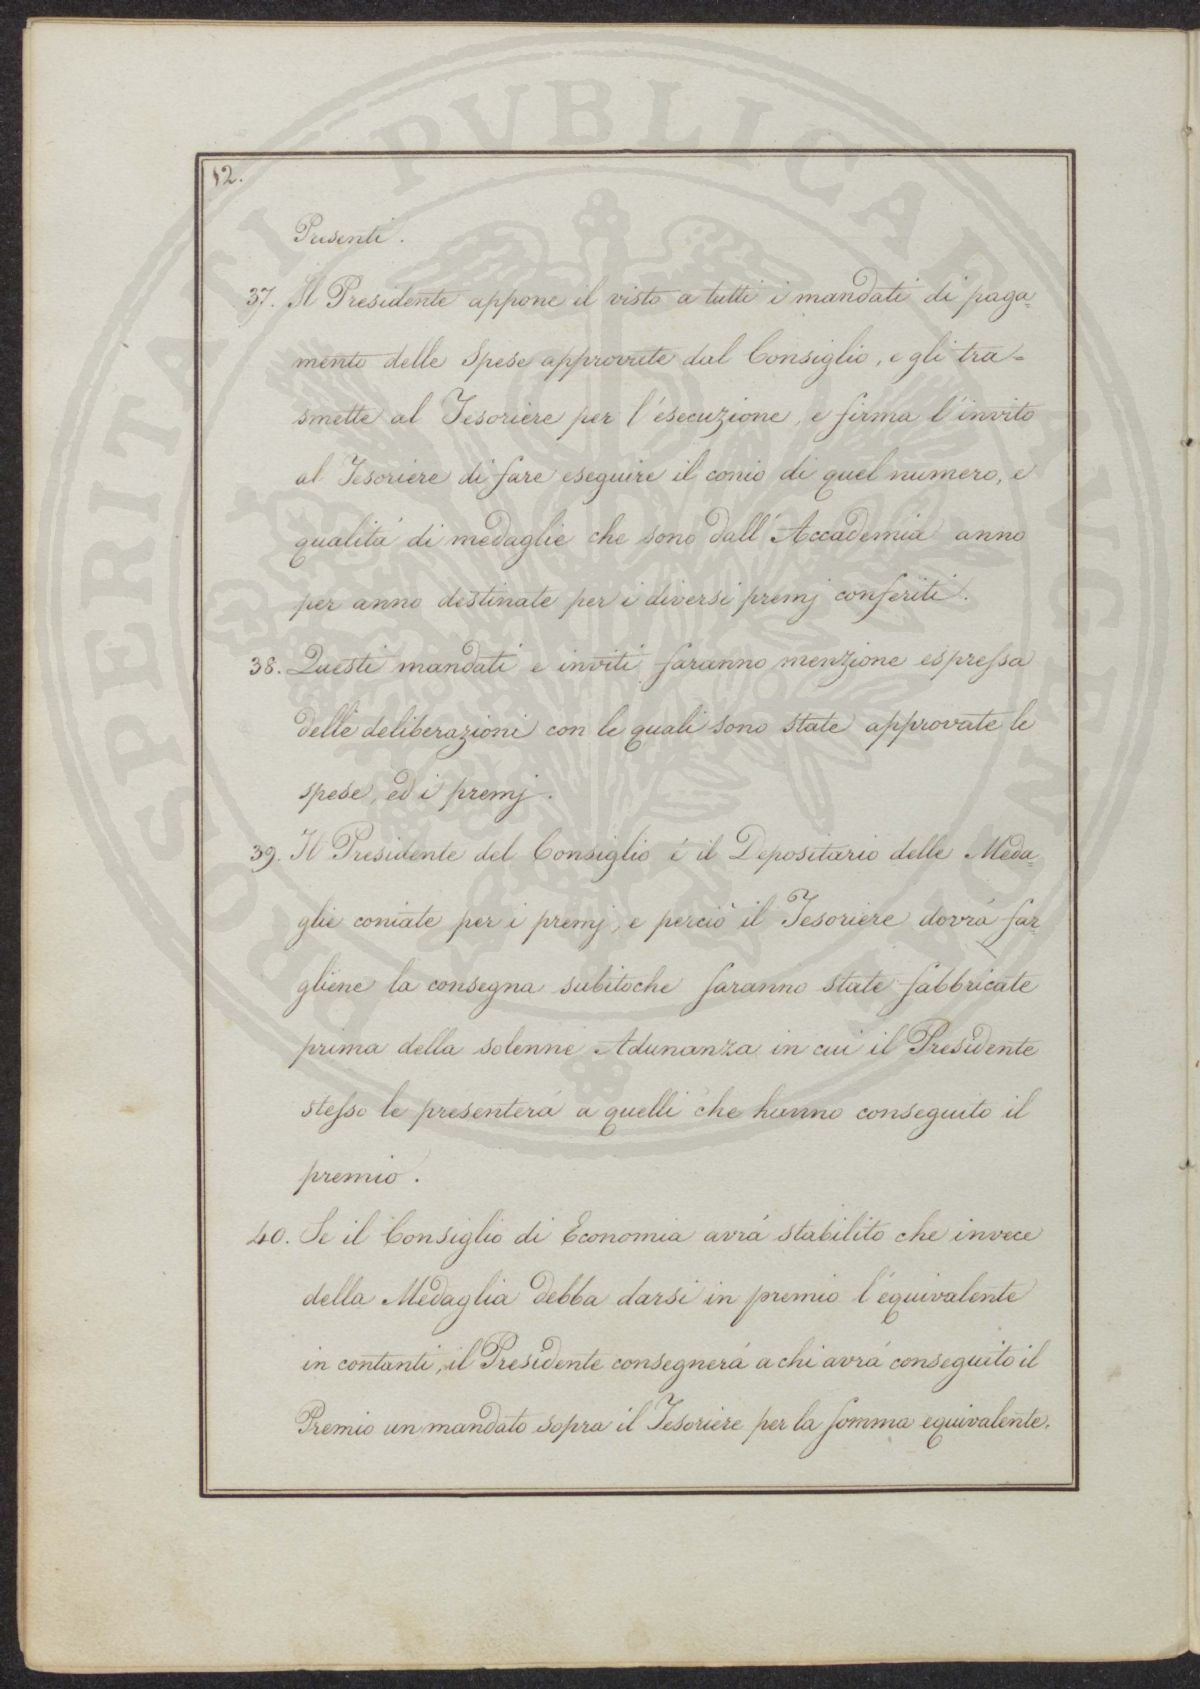 12.
Presenti.
37. Il Presidente appone il visto a tutti i mandati di paga=
mento delle Spese approvate dal Consiglio, e gli tra=
smette al Tesoriere per l'esecuzione, e firma l'invito
al Tesoriere di fare eseguire il conio di quel numero, e
qualitá di medaglie che sono dall'Accademia anno
per anno destinate per i diversi premj conferiti.
38. Questi mandati e inviti faranno menzione espressa
delle deliberazioni con le quali sono state approvate le
spese, ed i premj.
39. Il Presidente del Consiglio é il Depositario delle Meda=
glie coniate per i premj, e perció il Tesoriere dovrá far=
gliene la consegna subitoche saranno state fabbricate
prima della solenne Adunanza in cui il Presidente
stesso le presenterá a quelli che hanno conseguito il
premio.
40. Se il Consiglio di Economia avrá stabilito che invece
della Medaglia debba darsi in premio l'equivalente
in contanti, il Presidente consegnerá a chi avrá conseguito il
Premio un mandato sopra il Tesoriere per la somma equivalente.
PROSPERITATI PVBLICAE AVGENDAE